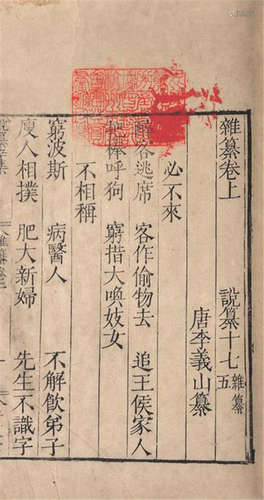 雜纂卷上 說纂十七 雜纂五
唐李義山纂
必不來
醉客逃席 客作偷物去 追王侯家人
把棒呼狗 窮措大喚妓女
不相稱
窮波斯 病醫人 不解飲弟子
瘦人相撲 肥大新婦 先生不識字